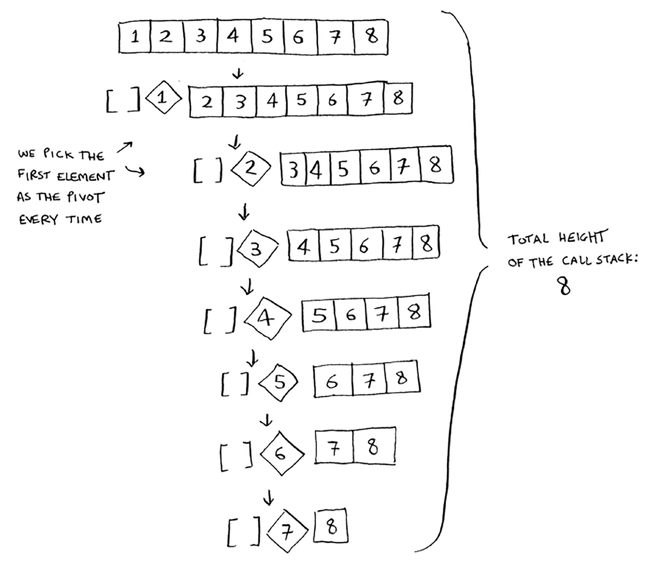 1 2 3 4 5 6 7 8
[ ] 1 2 3 4 5 6 7 8
WE PICK THE
FIRST ELEMENT
AS THE PIVOT
EVERY TIME
[ ] 2 3 4 5 6 7 8
[ ] 3 4 5 6 7 8
[ ] 4 5 6 7 8
[ ] 5 6 7 8
[ ] 6 7 8
[ ] 7 8
TOTAL HEIGHT
OF THE CALL STACK:
8